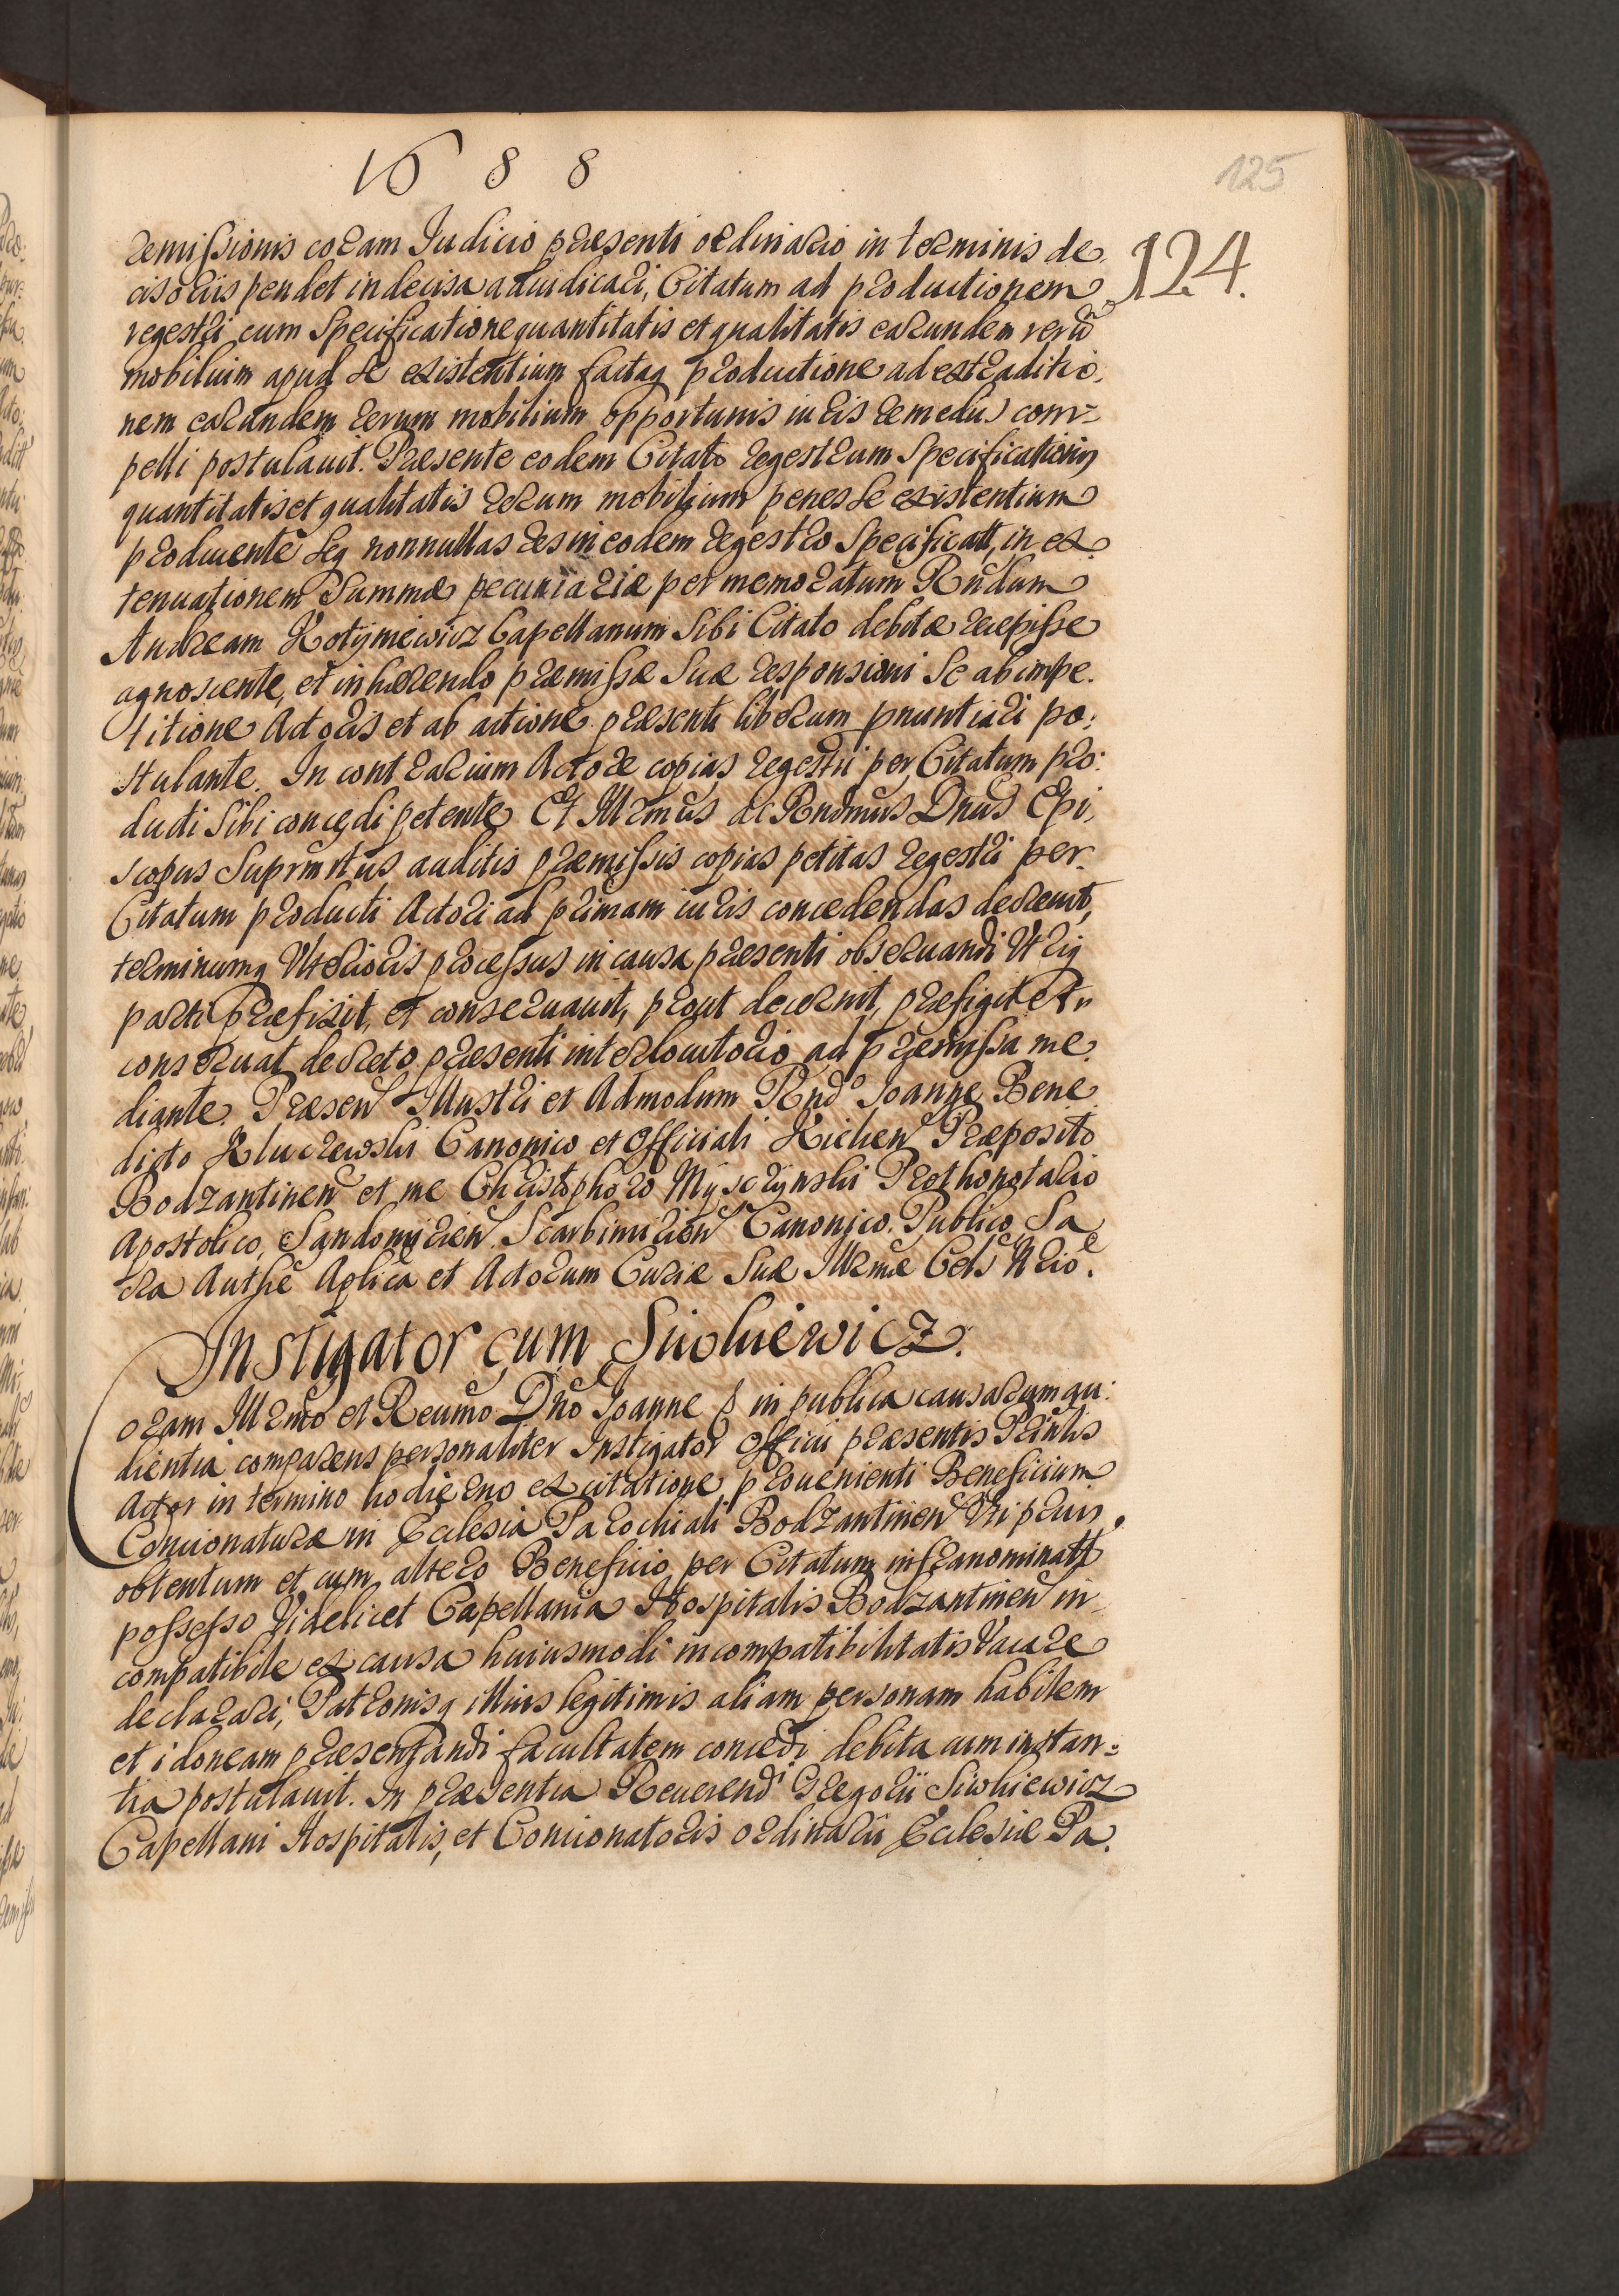 1688
125
124.
remissionis coram Iudicio præsenti ordinario in terminis de,
cisoriis pendet indecisa adiudicari, Citatum ad productionem
regestri cum Specificatione quantitatis et qualitatis earundem rerū
mobilium apud se existentium factaq productione ad extraditio,
nem earundem rerum mobilium opportunis iuris remediis com=
pelli postulauit. Præsente eodem Citato regestrum Specificationis
quantitatis et qualitatis rerum mobilium penes se existentium
producente seq nonnullas res in eodem regestro Specificatt, in ex,
tenuationem Summæ pecuniariæ per memoratum Rndum
Andream Kotyniewicz Capellanum Sibi Citato debitæ recepisse
agnoscente, et inhærendo præmissæ Suæ responsioni Se ab impe,
titione Actoris et ab actione præsenti liberum pnuntiari po,
stulante. In contrarium Actore copias regestri per Citatum pro:
ducti Sibi concedi petente Et Illrmus ac Rndmus Dnus Epi,
scopus Suprmtus auditis præmissis copias petitas regestri per
Citatum producti Actori ad primam iuris concedendas decreuit,
terminumq Vlterioris processus in causa præsenti obseruandi Vtriq
parti præfixit, et conseruauit, prout decernit, præfigit et
conseruat decreto præsenti interlocutorio ad præmissa me,
diante. Præsen Illustri et Admodum Rndo Joanne Bene
dicto Kluczewski Canonico et Officiali Kielcen Præposito
Bodzantinen et me Christophoro Myszczynski Prothonotario
Apostolico, Sandomirien Scarbimirien Canonico. Publico Sa
cra Authe Aplica et Actorum Curiæ Suæ Illrmæ Cels Nrio.
Instigator cum Siwkiewicz.
Coram Illrmo et Reumo Dno Joanne in publica causarum au:
dientia comparens personaliter Instigator Officii præsentis Prinlis
Actor in termino hodierno ex citatione proueniente Beneficium
Concionaturæ in Ecclesia Parochiali Bodzantinen Vti prius
obtentum et cum altero Beneficio per Citatum infranominatt
possesso Videlicet Capellania Hospitalis Bodzantinen in
compatibile ex causa huiusmodi incompatibilitatis Vacare
declarari, Patronisq illius legitimis aliam personam habilem
et idoneam præsentandi facultatem concedi debita cum instan=
tia postulauit. In præsentia Reuerendi Gregorii Siwkiewicz
Capellani Hospitalis, et Concionatoris ordinarii Ecclesiæ Pa.